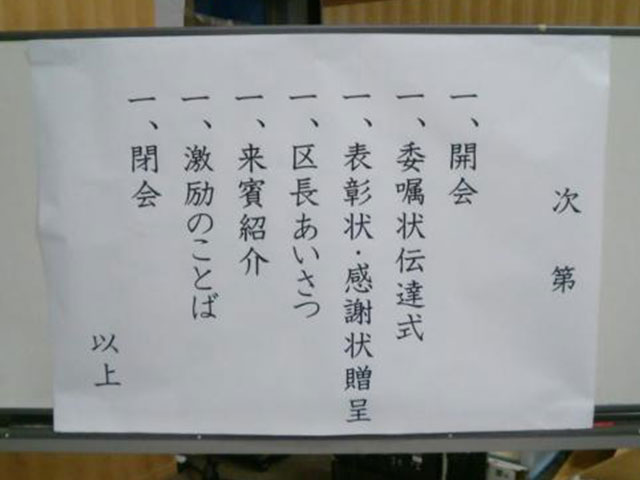 次第
一、開会
一、委嘱状伝達式
一、表彰状・感謝状贈呈
一、区長あいさつ
一、来賓紹介
一、激励のことば
一、閉会
以上